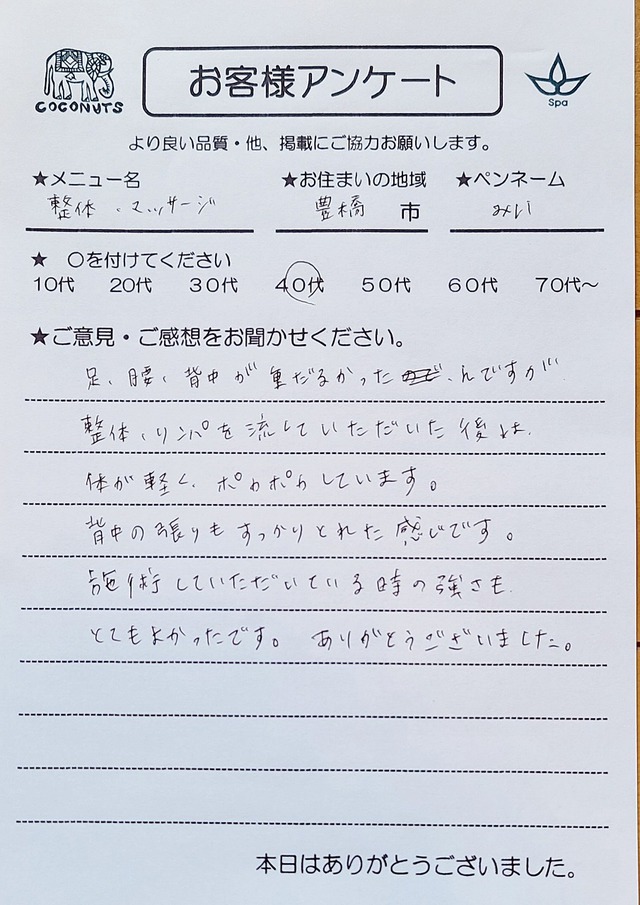 COCONUTS
お客様アンケート
Spa
より良い品質・他、掲載にご協力お願いします。
★メニュー名 ★お住まいの地域 ★ペンネーム
整体、マッサージ 豊橋 市 みい
★ 〇を付けてください
10代 20代 30代 40代 50代 60代 70代～
★ご意見・ご感想をお聞かせください。
足、腰、背中が重だるかった んですが
整体、リンパを流していただいた後は、
体が軽く、ポカポカしています。
背中の張りもすっかりとれた感じです。
施術していただいている時の強さも
とてもよかったです。 ありがとうございました。
本日はありがとうございました。